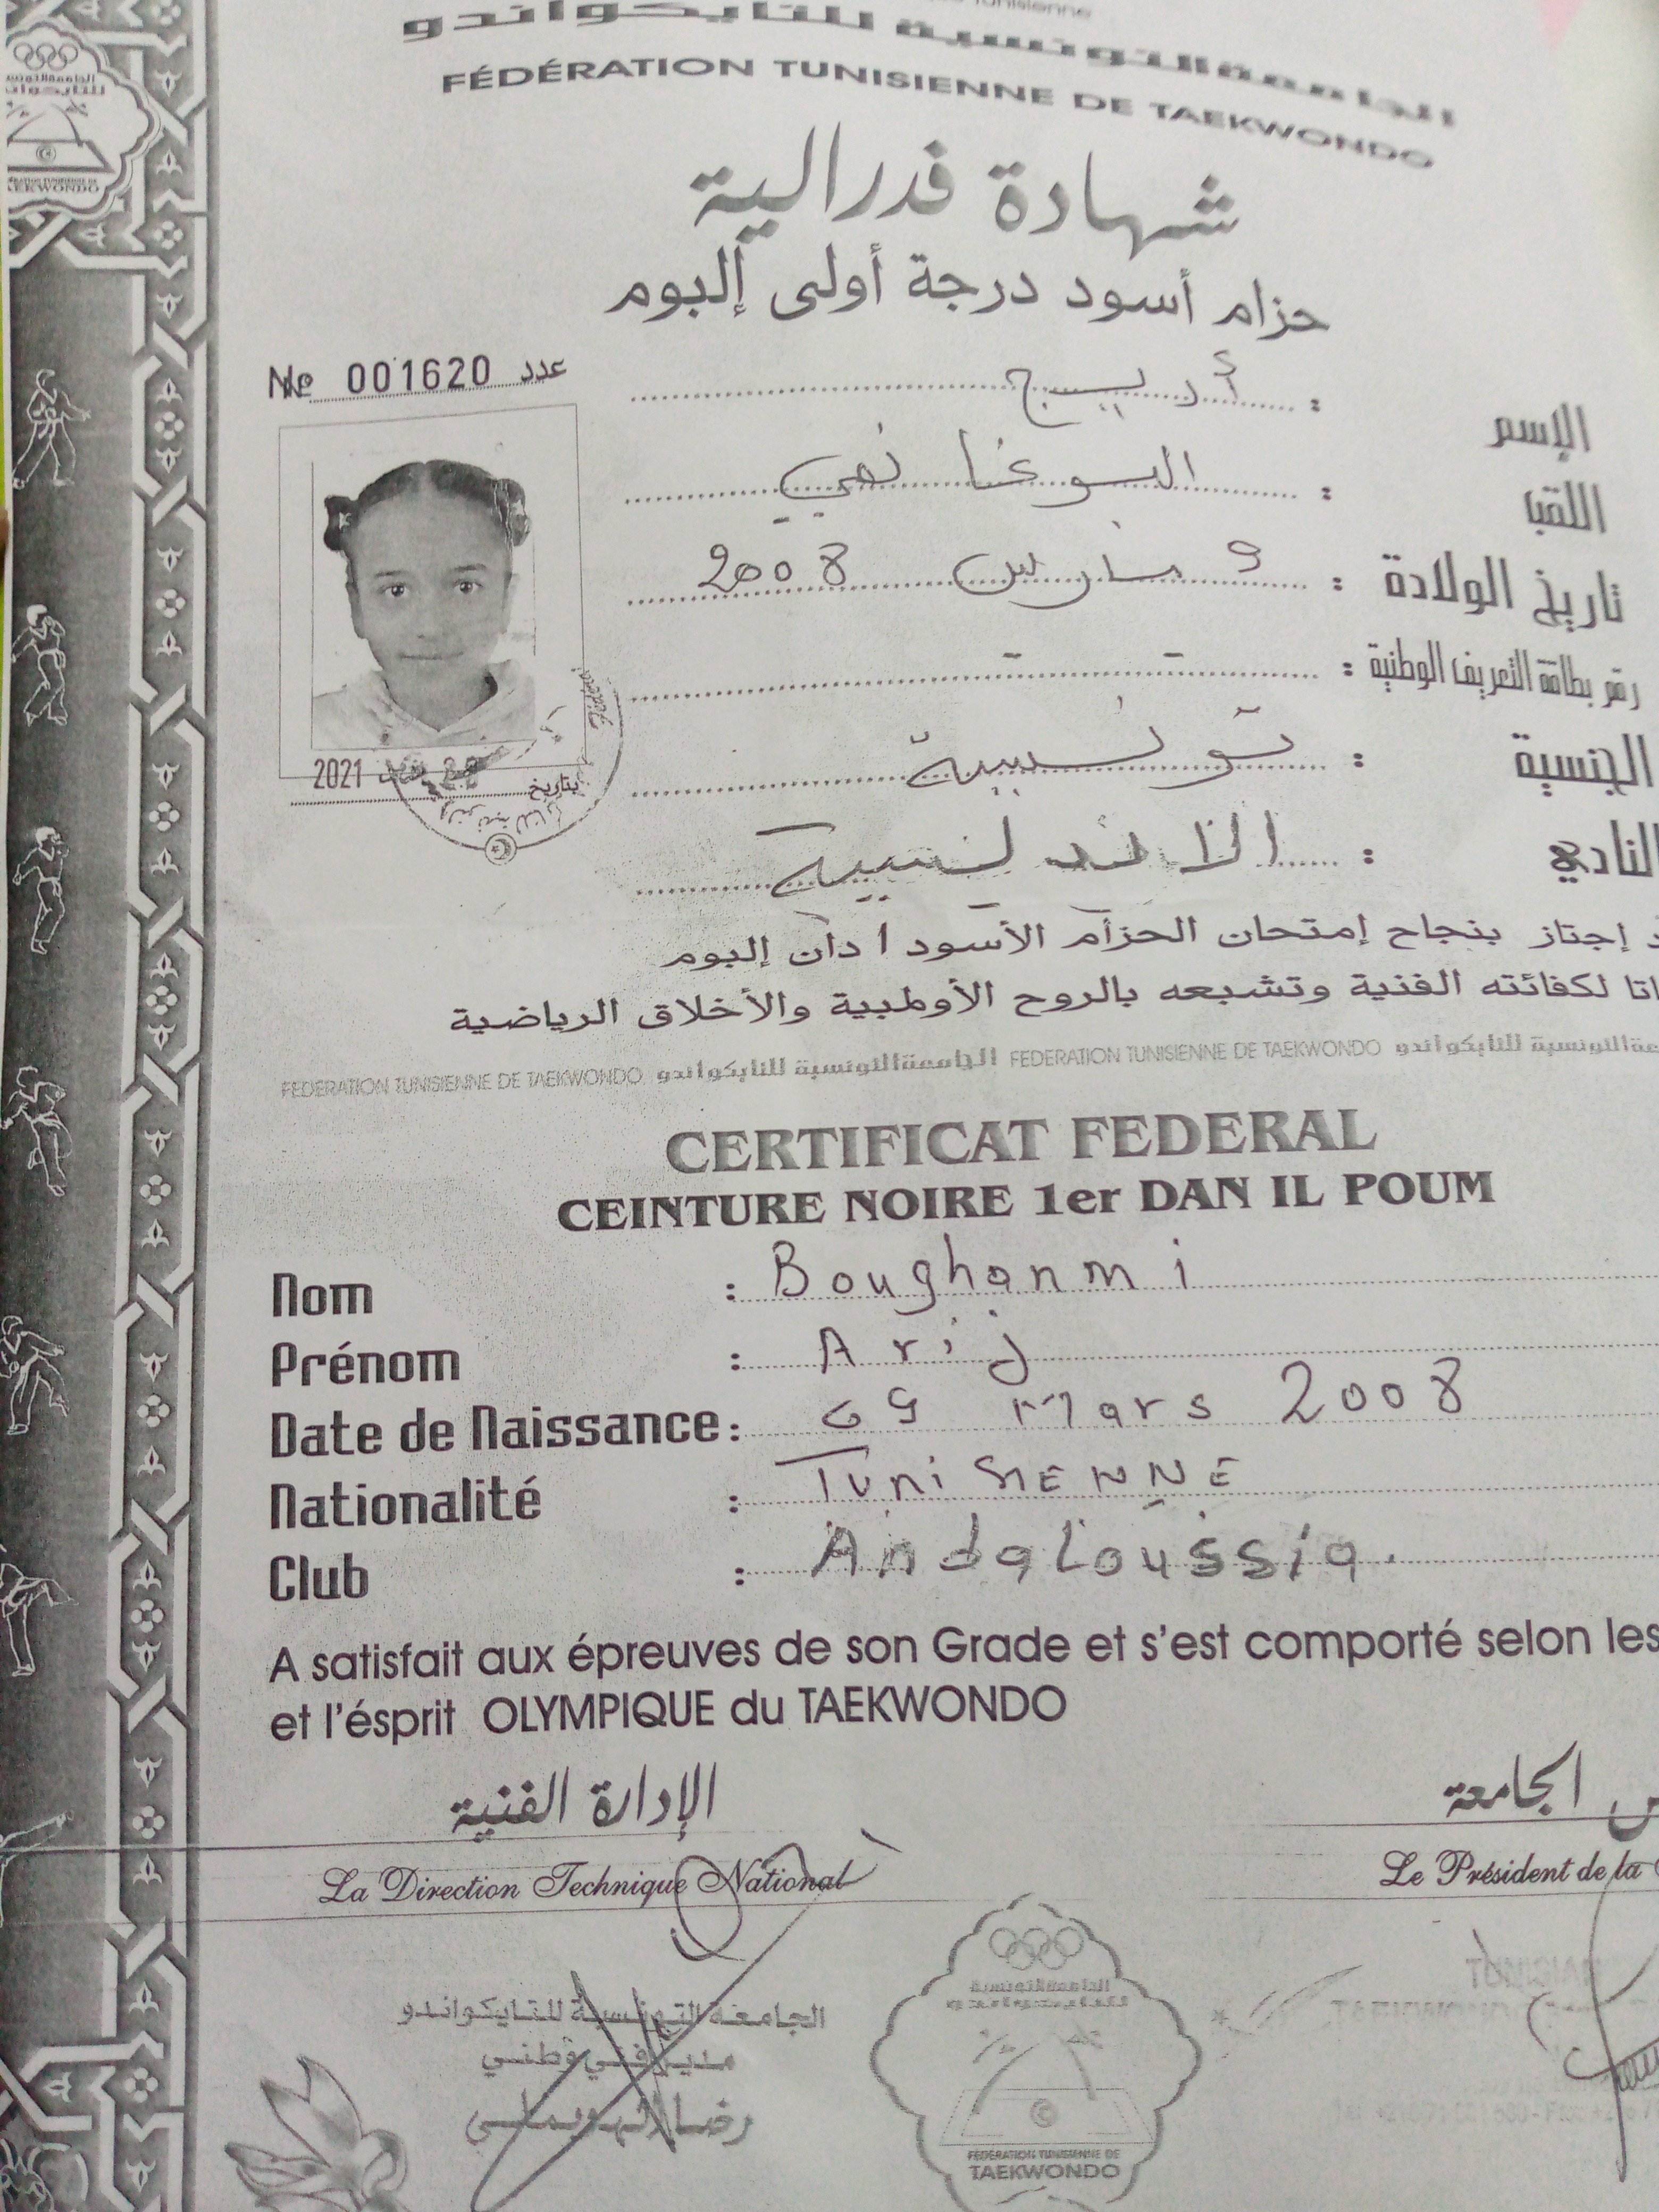 Tunisienne
الجامعة التونسية للتايكواندو
FÉDÉRATION TUNISIENNE DE TAEKWONDO
شهادة فدرالية
حزام أسود درجة أولى إلبوم
№ 001620 عدد
الإسم : أريج
اللقب : البوغانمي
تاريخ الولادة : 9 مارس 2008
رقم بطاقة التعريف الوطنية :
الجنسية : تونسية
النادي : الاندلسية
2021
بتاريخ
إجتاز بنجاح إمتحان الحزام الأسود 1 دان إلبوم
لكفائته الفنية وتشبعه بالروح الأولمبية والأخلاق الرياضية
FEDERATION TUNISIENNE DE TAEKWONDO الجامعة التونسية للتايكواندو FEDERATION TUNISIENNE DE TAEKWONDO التونسية للتايكواندو
CERTIFICAT FEDERAL
CEINTURE NOIRE 1er DAN IL POUM
Nom : Boughanmi
Prénom : Arij
Date de Naissance : 09 Mars 2008
Nationalité : TuniSIENNE
Club : Andaloussia.
A satisfait aux épreuves de son Grade et s'est comporté selon les
et l'ésprit OLYMPIQUE du TAEKWONDO
الإدارة الفنية
الجامعة
La Direction Technique National
Le Président de la
الجامعة التونسية للتايكواندو
مدير فني وطني
الجامعة التونسية
للتايكواندو
FÉDÉRATION TUNISIENNE DE
TAEKWONDO
TUNISIAN
TAEKWONDO